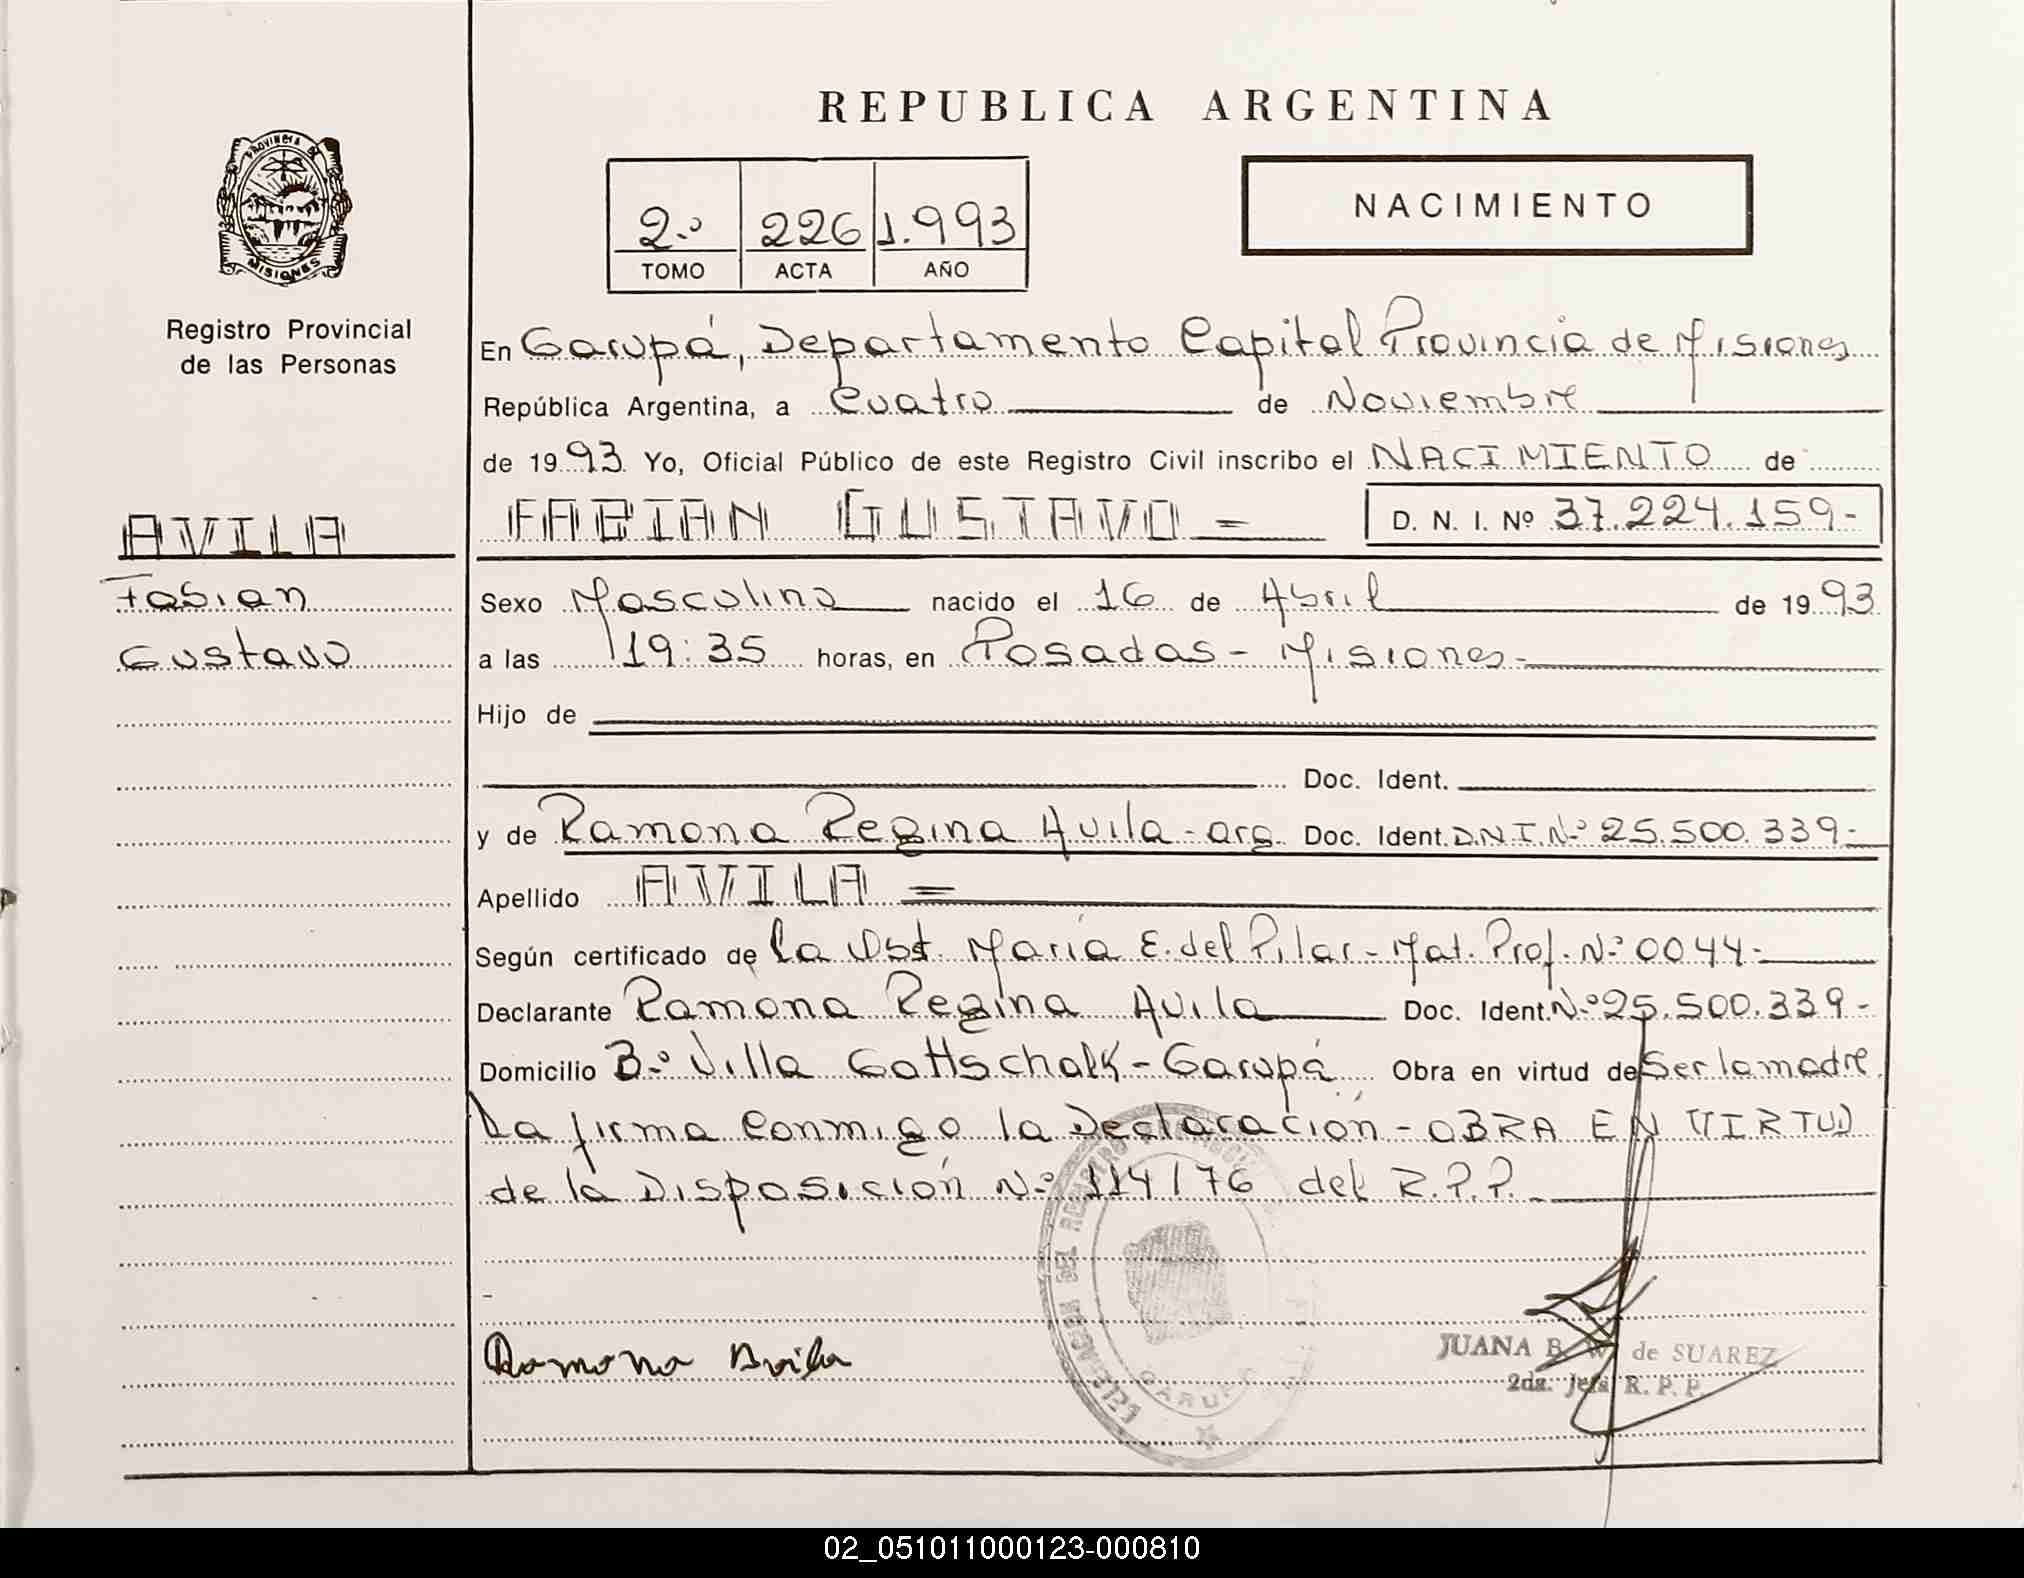 REPUBLICA ARGENTINA
PROVINCIA DE
MISIONES
Registro Provincial
de las Personas
2.º 226 1.993
TOMO ACTA AÑO
NACIMIENTO
En Garupá, Departamento Capital Provincia de Misiones
República Argentina, a Cuatro de Noviembre
de 1993 Yo, Oficial Público de este Registro Civil inscribo el NACIMIENTO de
AVILA
Fabian
Gustavo
FABIAN GUSTAVO = D. N. I. Nº 37.224.159-
Sexo Masculino nacido el 16 de Abril de 1993
a las 19:35 horas, en Posadas - Misiones-
Hijo de
Doc. Ident.
y de Ramona Regina Avila - arg. Doc. Ident. D.N.I. Nº 25.500.339-
Apellido AVILA =
Según certificado de la Obst. María E. del Pilar - Mat. Prof. Nº 0044-
Declarante Ramona Regina Avila Doc. Ident. Nº 25.500.339-
Domicilio Bº Villa Gottschalk - Garupá Obra en virtud de Ser la madre
La firma conmigo la Declaración - OBRA EN VIRTUD
de la Disposición Nº 114/76 del R.P.P.
DELEGACION DEL REGISTRO
GARUPA
Ramona Avila
JUANA B. W. de SUAREZ
2da. Jefa R. P. P.
02_051011000123-000810